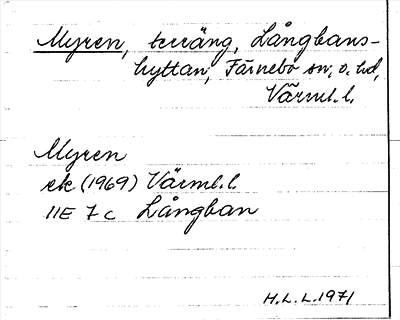 Myren, terräng, Långbans-
hyttan, Färnebo sn, o. hd,
Värml. l.
Myren
ek (1969) Värml. l.
11E 7c Långban
H.L.L. 1971